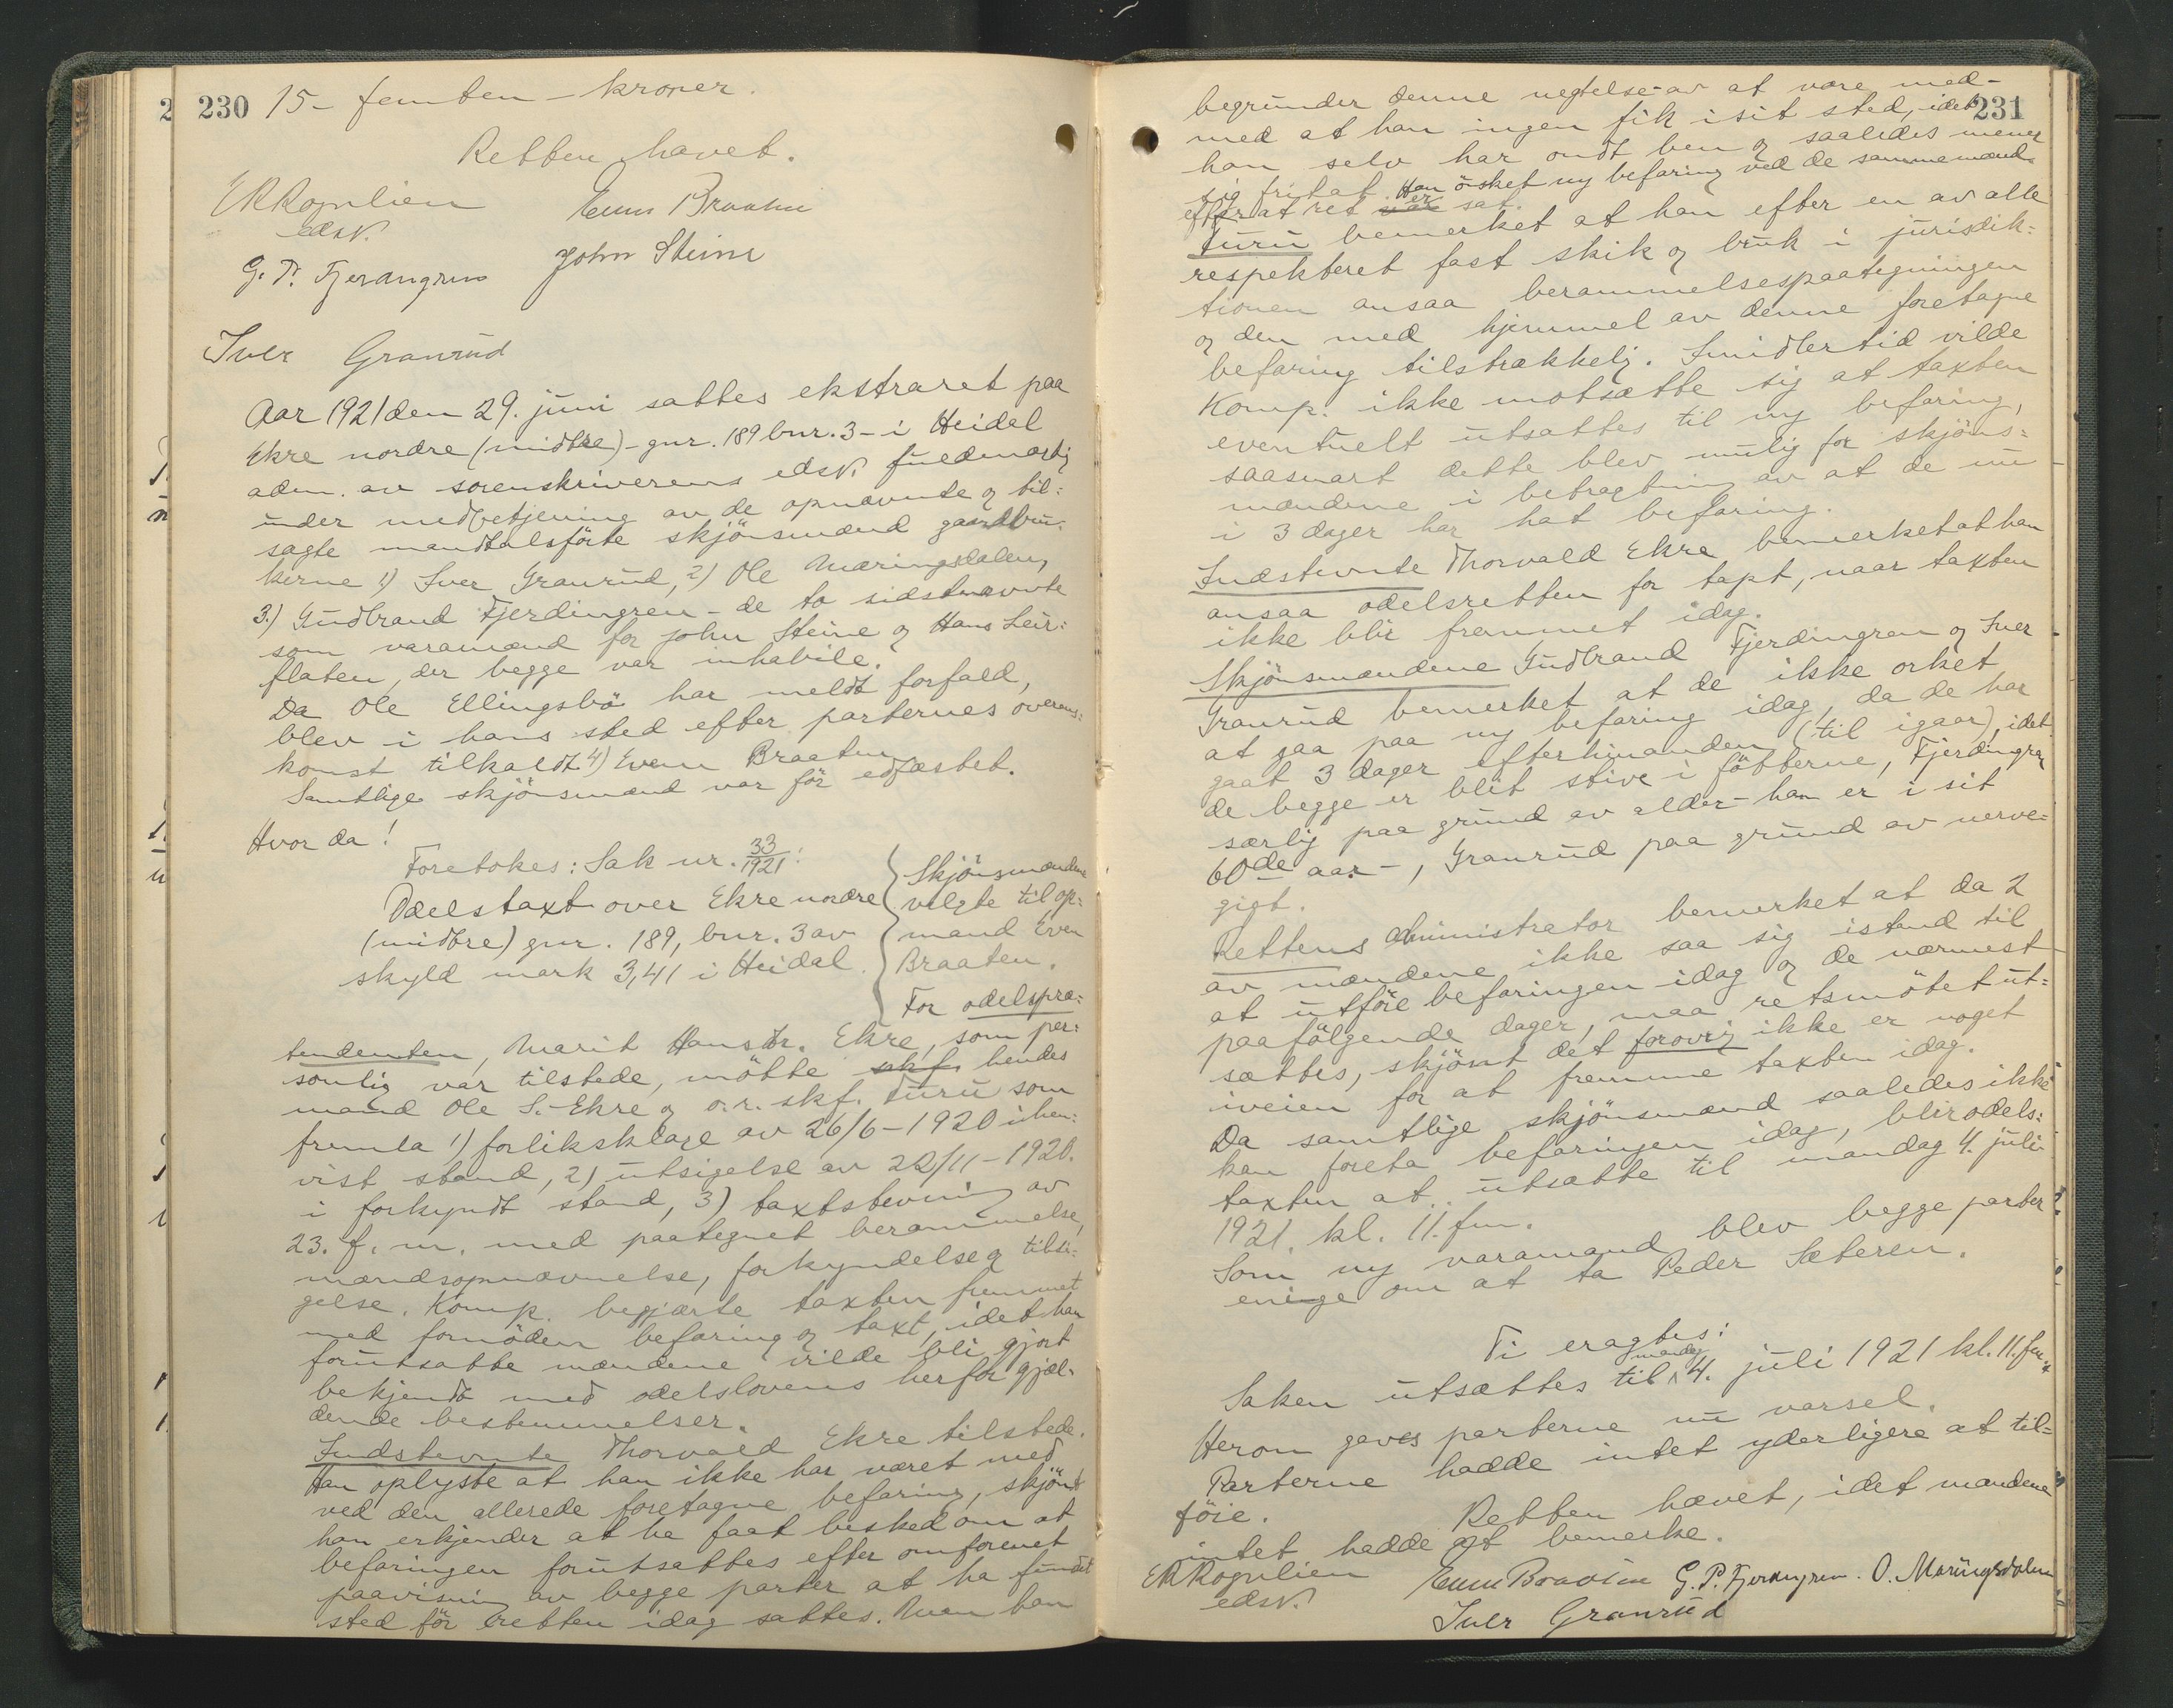 230 15 - femten - kroner.
Retten hævet.
E R Rognlien
edsv.
Even Braaten
G. P. Fjerdingren
John Steine
Iver Granrud
Aar 1921 den 29. juni sattes ekstraret paa
Ekre nordre (midtre) - gnr. 189 bnr. 3 - i Heidal
adm. av sorenskriverens edsv. fuldmægtig
under medbetjening av de opnævnte og til=
sagte mandtalsförte skjönsmænd gaardbru=
kerne 1) Iver Granrud, 2) Ole Mæringsdalen,
3.) Gudbrand Fjerdingren - de to sidstnævnte
som varamænd for John Steine og Hans Leir=
flaten, der begge var inhabile.
Da Ole Ellingsbö har meldt forfald,
blev i hans sted efter parternes overens=
komst tilkaldt 4) Even Braaten.
Samtlige skjönsmænd var för edfæstet.
Hvor da!
Foretokes: Sak nr. 33/1921:
Odelstaxt over Ekre nordre
(midtre) gnr. 189, bnr. 3 av
skyld mark 3,41 i Heidal.
Skjönsmændene
valgte til op=
mand Even
Braaten.
For odelspræ=
tendenten, Marit Hansdtr. Ekre, som per=
sonlig var tilstede, mötte skf. hendes
mand Ole S. Ekre og o.r. skf. Turu som
fremla 1) forliksklage av 26/6 - 1920 i hen=
vist stand, 2) utsigelse av 22/11 - 1920.
i forkyndt stand, 3) taxtstevning av
23. f. m. med paategnet berammelse,
mændsopnævnelse, forkyndelse og tilsi=
gelse. Komp. begjærte taxten fremmet
med fornöden befaring og taxt, idet han
forutsatte mændene vilde bli gjort
bekjendt med odelslovens herfor gjæl=
dende bestemmelser.
Indstevnte Thorvald Ekre tilstede.
Han oplyste at han ikke har været med
ved den allerede foretagne befaring, skjönt
han erkjender at ha faat besked om at
befaringen forutsattes efter omforenet
paavisning av begge parter at ha fundet
sted för retten idag sattes. Men han
231
begrunder denne negtelse av at være med -
med at han ingen fik i sit sted, idet
han selv har ondt ben og saaledes mener
sig fritat. Han önsket ny befaring ved de samme mænd
efter at ret var er sat.
Turu bemerket at han efter en av alle
respekteret fast skik og bruk i jurisdik=
tionen ansaa berammelsespaategningen
og den med hjemmel av denne foretagne
befaring tilstrækkelig. Imidlertid vilde
Komp. ikke motsætte sig at taxten
eventuelt utsattes til ny befaring,
saasnart dette blev mulig for skjöns=
mændene i betragtning av at de nu
i 3 dager har hat befaring.
Indstevnte Thorvald Ekre bemerket at han
ansaa odelsretten for tapt, naar taxten
ikke blir fremmet idag.
Skjönsmændene Gudbrand Fjerdingren og Iver
Granrud bemerket at de ikke orket
at gaa paa ny befaring idag, da de har
gaat 3 dager efterhinanden (til igaar), idet
de begge er blit stive i fötterne, Fjerdingren
særlig paa grund av alder - han er i sit
60de aar -, Granrud paa grund av nerve=
gigt.
Rettens administrator bemerket at da 2
av mændene ikke saa sig istand til
at utföre befaringen idag og de nærmest
paafölgende dager, maa retsmötet ut=
sættes, skjönt det forövrig ikke er noget
iveien for at fremme taxten idag.
Da samtlige skjönsmænd saaledes ikke
kan foreta befaringen idag, blir odels=
taxten at utsætte til mandag 4. juli
1921. kl. 11. fm.
Som ny varamand blev begge parter
enige om at ta Peder Sæteren.
Ti eragtes:
Saken utsættes til mandag 4. juli 1921 kl. 11. fm.
Herom gaves parterne nu varsel.
Parterne hadde intet yderligere at til=
föie.
Retten hævet, idet mændene
intet hadde at bemerke.
E R Rognlien
edsv.
Even Braaten G. P. Fjerdingren. O. Mæringsdalen
Iver Granrud